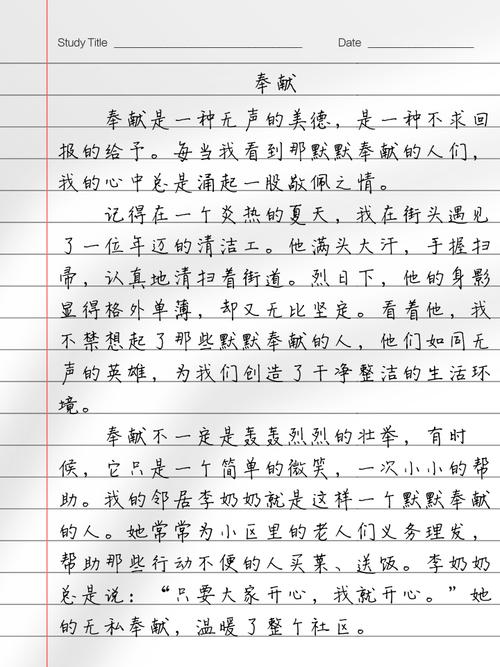 Study Title Date
奉献
奉献是一种无声的美德，是一种不求回
报的给予。每当我看到那默默奉献的人们，
我的心中总是涌起一股敬佩之情。
记得在一个炎热的夏天，我在街头遇见
了一位年迈的清洁工。他满头大汗，手握扫
帚，认真地清扫着街道。烈日下，他的身影
显得格外单薄，却又无比坚定。看着他，我
不禁想起了那些默默奉献的人，他们如同无
声的英雄，为我们创造了干净整洁的生活环
境。
奉献不一定是轰轰烈烈的壮举，有时
候，它只是一个简单的微笑，一次小小的帮
助。我的邻居李奶奶就是这样一个默默奉献
的人。她常常为小区里的老人们义务理发，
帮助那些行动不便的人买菜、送饭。李奶奶
总是说：“只要大家开心，我就开心。”她
的无私奉献，温暖了整个社区。